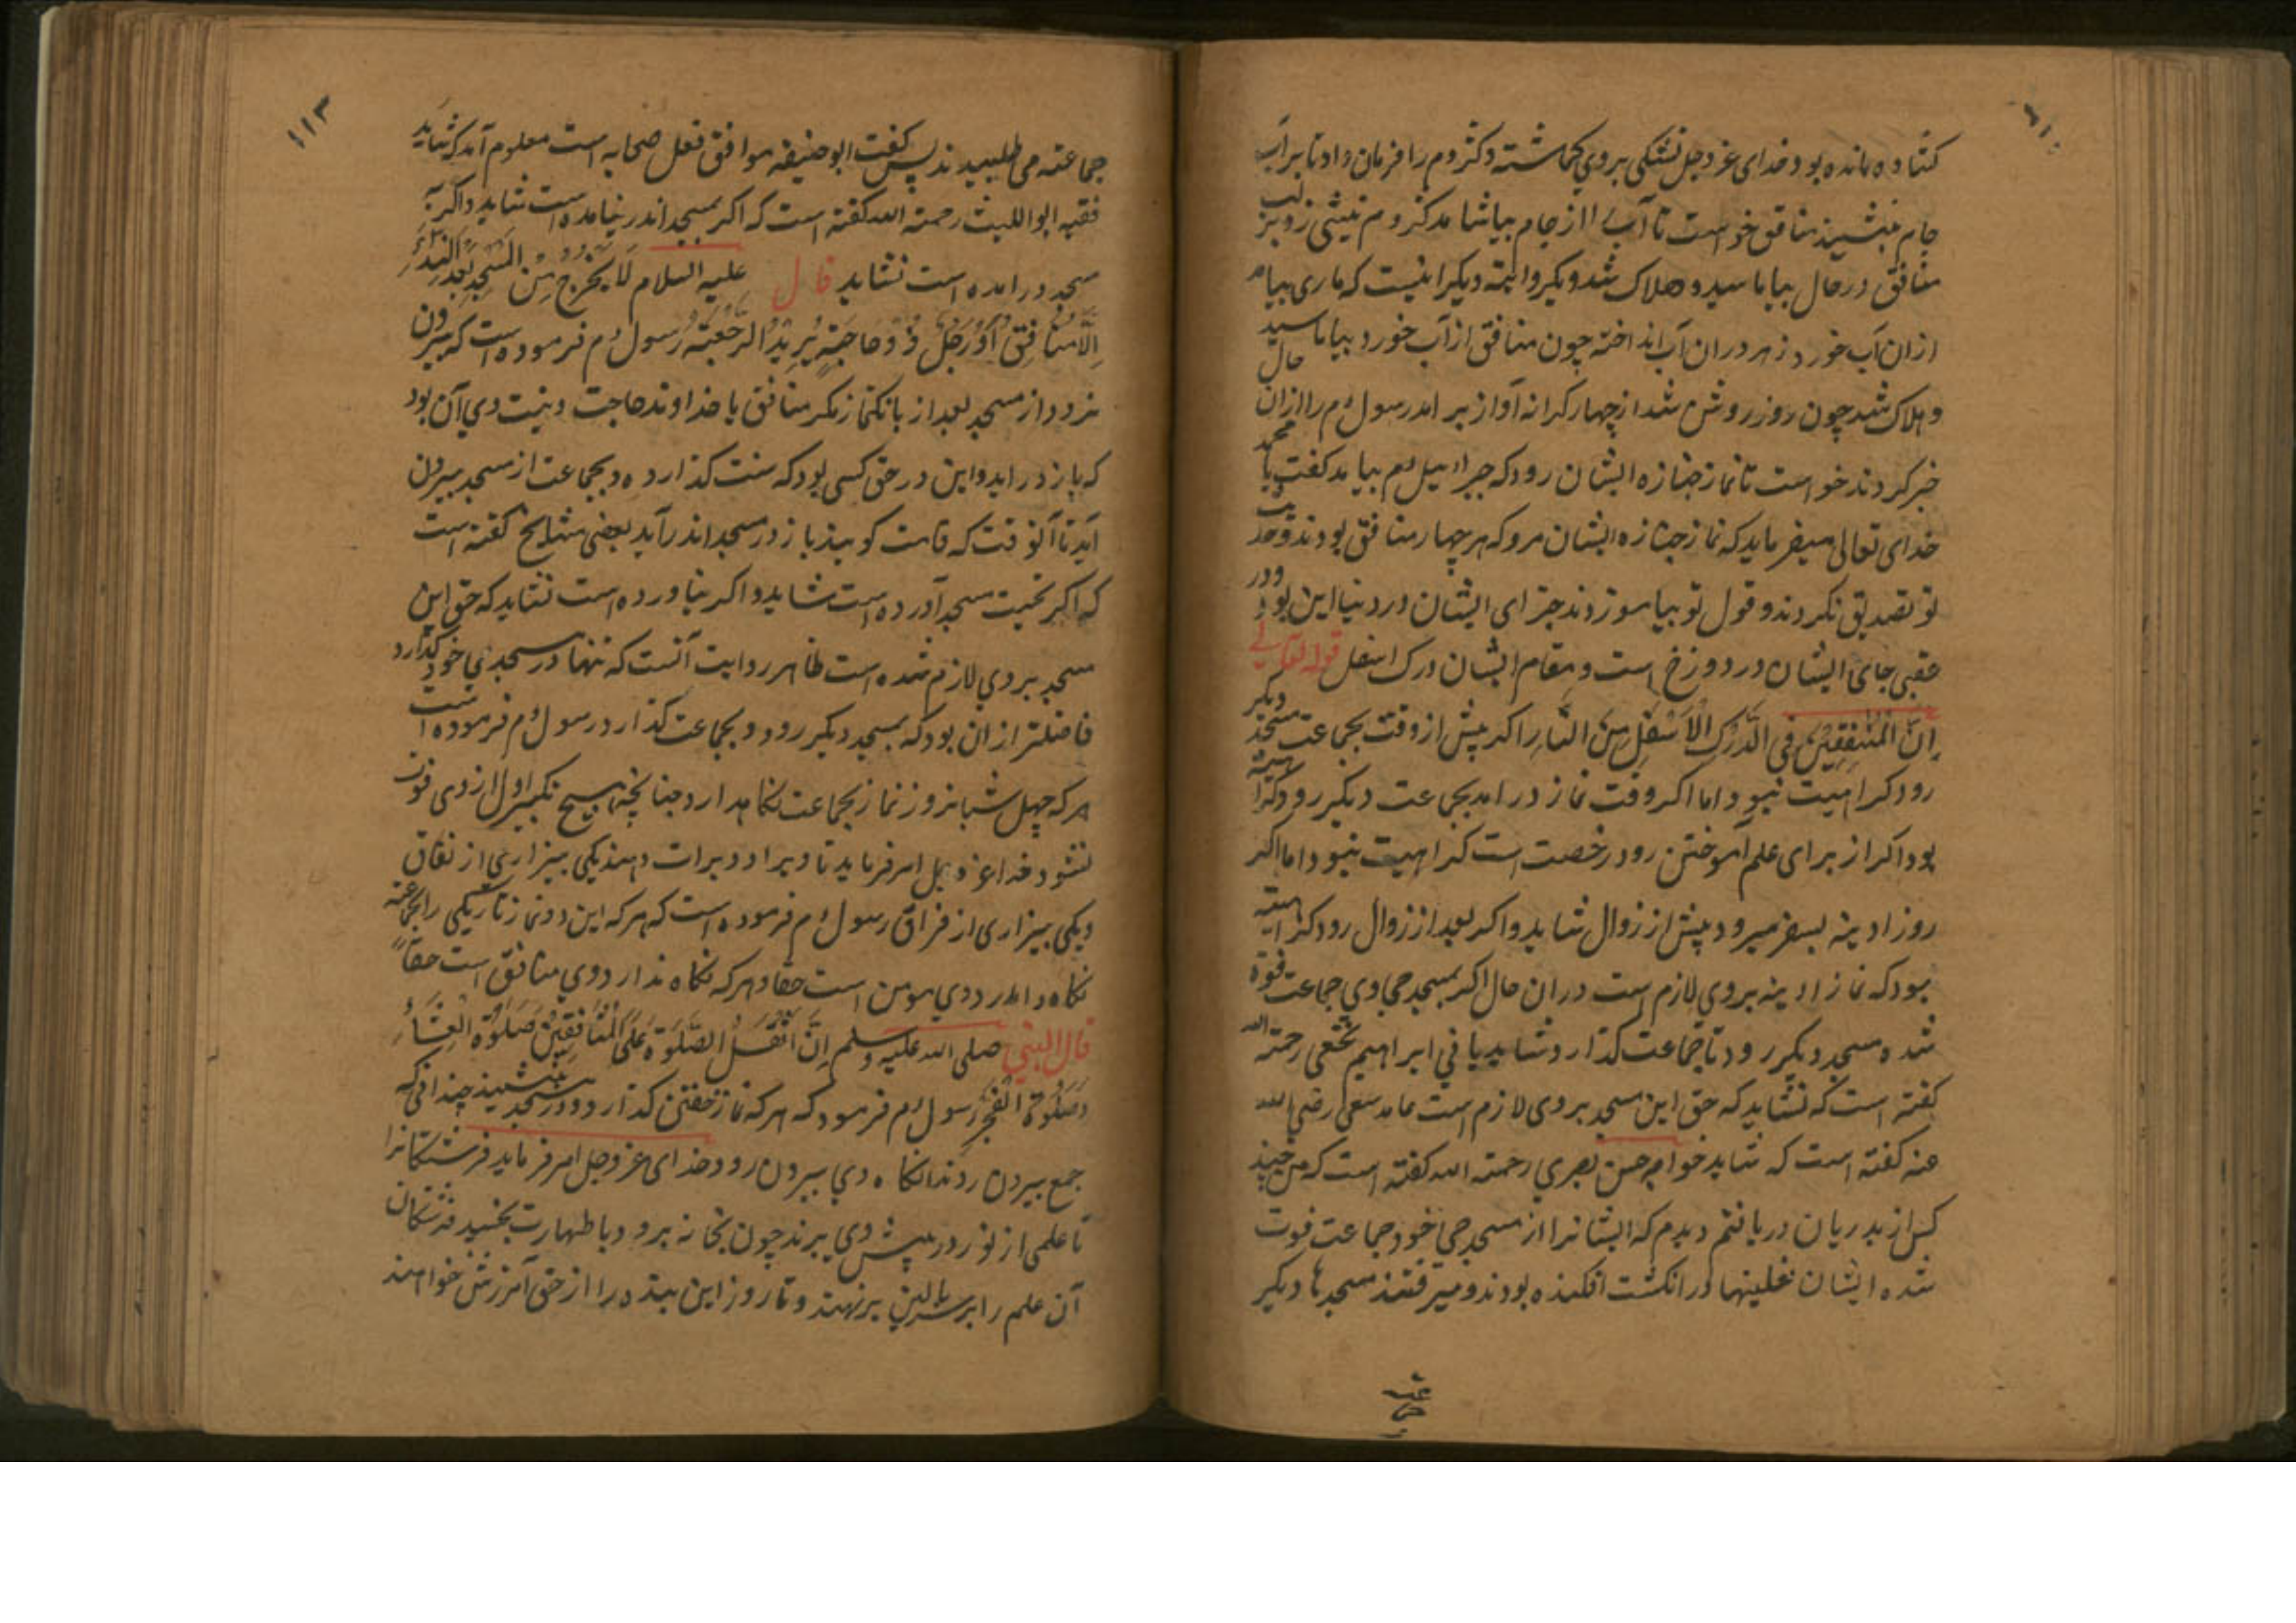 کشاده مانده بود خدای عزوجل تشنکی بروی کماشته وکژدم را فرمان داد تا برآب
جام بنشیند منافق خواست تا آب را از جام بیاشامد کژدم نیشی زد برلب
منافق در حال بیاماسید و هلاک شد ودیکر روایته دیکر اینست که ماری بیامد
ازان آب خورد زهر دران آب انداخته چون منافق ازآب خورد بیاماسید حال
وهلاک شد چون روز روشن شد از چهار کرانه آواز برامد رسول م را ازان
خبر کردند خواست تا نماز جنازه ایشان رود که جبرائیل م بیامد کفت یا محمد
خدای تعالی میفرماید که نماز جنازه ایشان مرو که هر چهار منافق بودند
تو تصدیق نکردند وقول تو بیاموزدند جزای ایشان در دنیا این بود ودر
عقبی جای ایشان در دوزخ است ومقام ایشان درک اسفل قوله تعالی
اِنَّ الْمُنٰفِقِیْنَ فِی الدَّرْکِ الْاَسْفَلِ مِنَ النَّارِ اکر پیش از وقت بجماعت مسجد دیکر
رود کراهیت نبود اما اکر وقت نماز درامد بجماعت دیکر رود کراهیته
بود اکر از برای علم آموختن رود رخصت است کراهیت نبود اما اکر
روز ادینه بسفر میرود پیش از زوال شاید واکر بعد از زوال رود کراهیته
بود که نماز ادینه بروی لازم است دران حال اکر بمسجد حی اوی جماعت فوة
شده مسجد دیکر رود تا جماعت کذارد شاید یا نی ابراهیم نخعی رحمته الله
کفته است که نشاید که حق این مسجد بروی لازم است عامد سعی رضی الله
عنه کفته است که شاید خواجه حسن بصری رحمته الله کفته است که من چند
کس از بدریان دریافتم دیدم که ایشانرا از مسجد حی خود جماعت فوت
شده ایشان نعلینها در انکشت افکنده بودند ومیرفتند مسجدها دیکر
۱۱۳
جماعته می طلبیدند پس کفت ابوحنیفه موافق فعل صحابه است معلوم آمد که شاید
فقیه ابو اللیث رحمته الله کفته است که اکر بمسجد اندر نیامده است شاید واکر به
مسجد درامده است نشاید قال علیه السلام لَا یَخْرُجُ مِنَ الْمَسْجِدِ بَعْدَ النِّدَاءِ
اِلَّا مُنَافِقٌ اَوْ رَجُلٌ ذُوْ حَاجَتٍ یُرِیْدُ الرَّجْعَتَه رسول م فرموده است که بیرون
نرود از مسجد بعد از بانکنماز مکر منافق یا خداوند حاجت ونیت وی آن بود
که باز دراید واین در حق کسی بود که سنت کذارده وبجماعت از مسجد بیرون
آید تا آنوقت که قامت کویند باز در مسجد اندر آید بعضی مشایخ کفته است
که اکر تحیت مسجد آورده است شاید واکر نیاورده است نشاید که حق این
مسجد بروی لازم شده است ظاهر روایت آنست که تنها در مسجد حی خود کذارد
فاضلتر ازان بود که بمسجد دیکر رود وبجماعت کذارد رسول م فرموده است
هرکه چهل شبانروز نماز بجماعت نکاهدارد چنانچه هیچ تکبیر اول از وی فوت
نشود خدا عز وجل امر فرماید تا ویرا دو برات دهند یکی بیزاری از نفاق
ویکی بیزاری از فراق رسول م فرموده است که هرکه این دو نماز تاریکی را بجماعته
نکاه دارد وی مومن است حقا وهرکه نکاه ندارد وی منافق است حقاً
قال النبی صلی الله علیه وسلم اِنَّ اَثْقَلَ الصَّلٰوة عَلَی الْمُنَافِقِیْنَ صَلٰوةُ الْعِشَاءِ
وَصَلٰوةُ الْفَجْرِ رسول م فرمود که هرکه نماز خفتن کذارد ودر مسجد بنشیند چندانی که
جمع بیرون روند انکاه وی بیرون رود خدای عزوجل امر فرماید فرشتکانرا
تا علمی از نور در پیش وی برند چون بخانه برود وبا طهارت بخسپد فرشتکان
آن علم را بر سر بالین برنهند وتا روز این بنده را از حق آمرزش خواهند